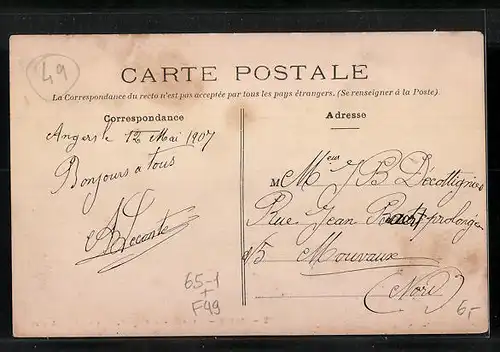 49
CARTE POSTALE
La Correspondance du recto n'est pas acceptée par tous les pays étrangers. (Se renseigner à la Poste).
Correspondance
Adresse
Angers le 12 Mai 1907
Bonjours à tous
A Lecomte
M Meur J B Décottignies
Rue Jean Bart prolongée
Mouvaux
(Nord)
65-1
+
F49
6,-